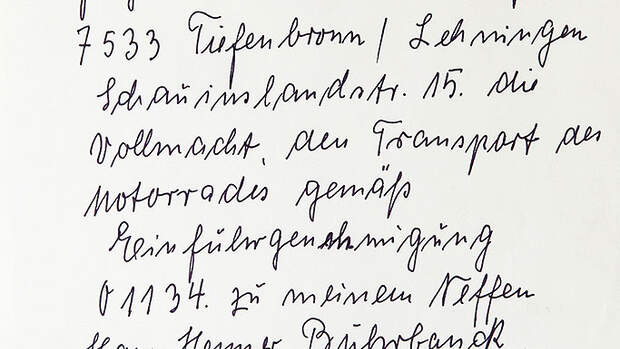 7533 Tiefenbronn / Lehningen
Schauinslandstr. 15. die
Vollmacht, den Transport des
Motorrades gemäß
Einfuhrgenehmigung
01134. zu meinem Neffen